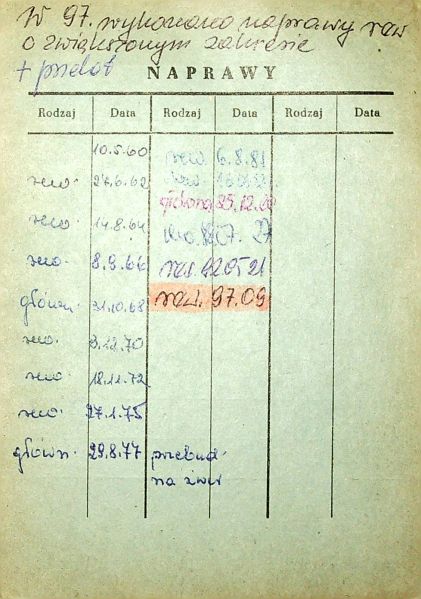 W 97. wykonano naprawy rew
o zwiększonym zakresie
+ przeł
NAPRAWY
Rodzaj Data Rodzaj Data Rodzaj Data
10.5.60 rew. 6.8.81
rew. 27.6.62
główna 25.12.
rew. 14.8.64
rew. 8.9.66 rew.
główn. 31.10.68 rew. 97.09
rew. 3.12.70
rew. 18.11.72
rew. 27.1.75
główn. 29.8.77 przebud.